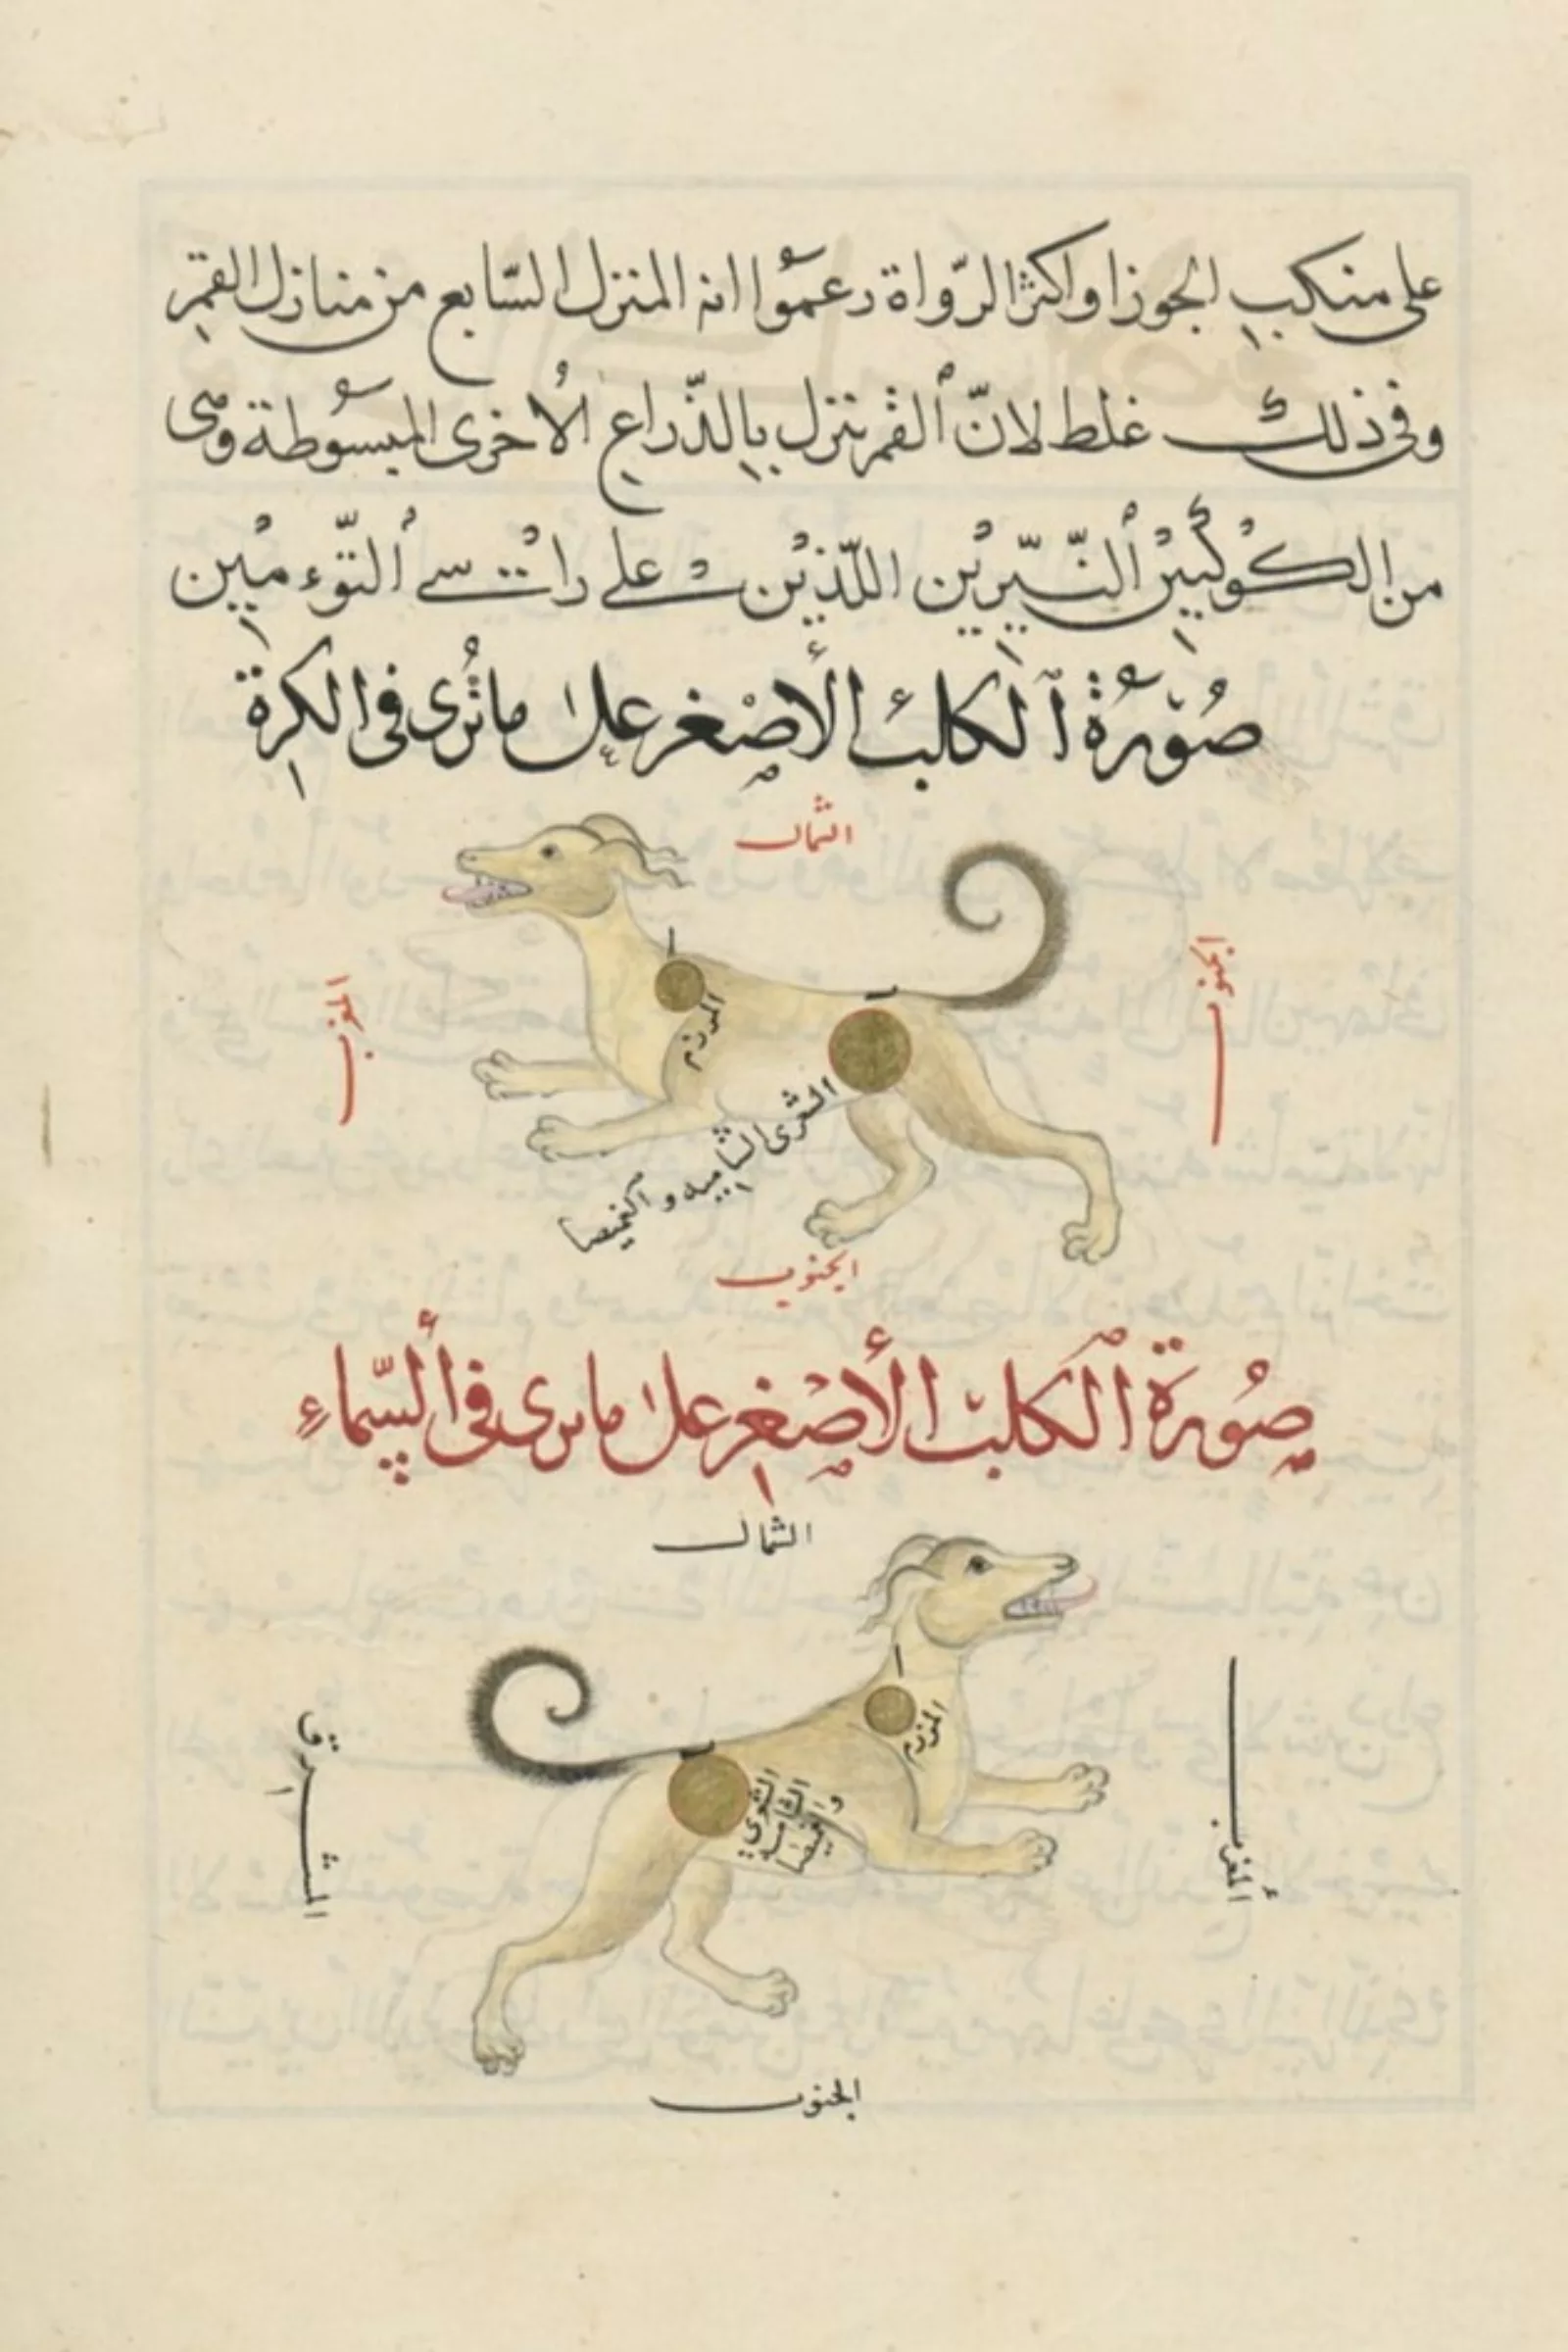 على منكب الجوزا واكثر الرّواة زعموا انه المنزل السّابع من منازل القمر
وفى ذلك غلط لانّ القمر ينزل بالذّراع الأخرى المبسوطة وهى
من الكوكبين النّيّرين اللّذين على راس التّوءمين
صورة الكلب الأصغر على ما ترى فى الكرة
الشمال
المغرب
الجنوب
المرزم
الشعرى الشاميه والغميصا
الجنوب
صورة الكلب الأصغر على ما يرى فى السّماء
الشمال
المرزم
المشرق
الشعرى
الشاميه
والغميصا
المغرب
الجنوب